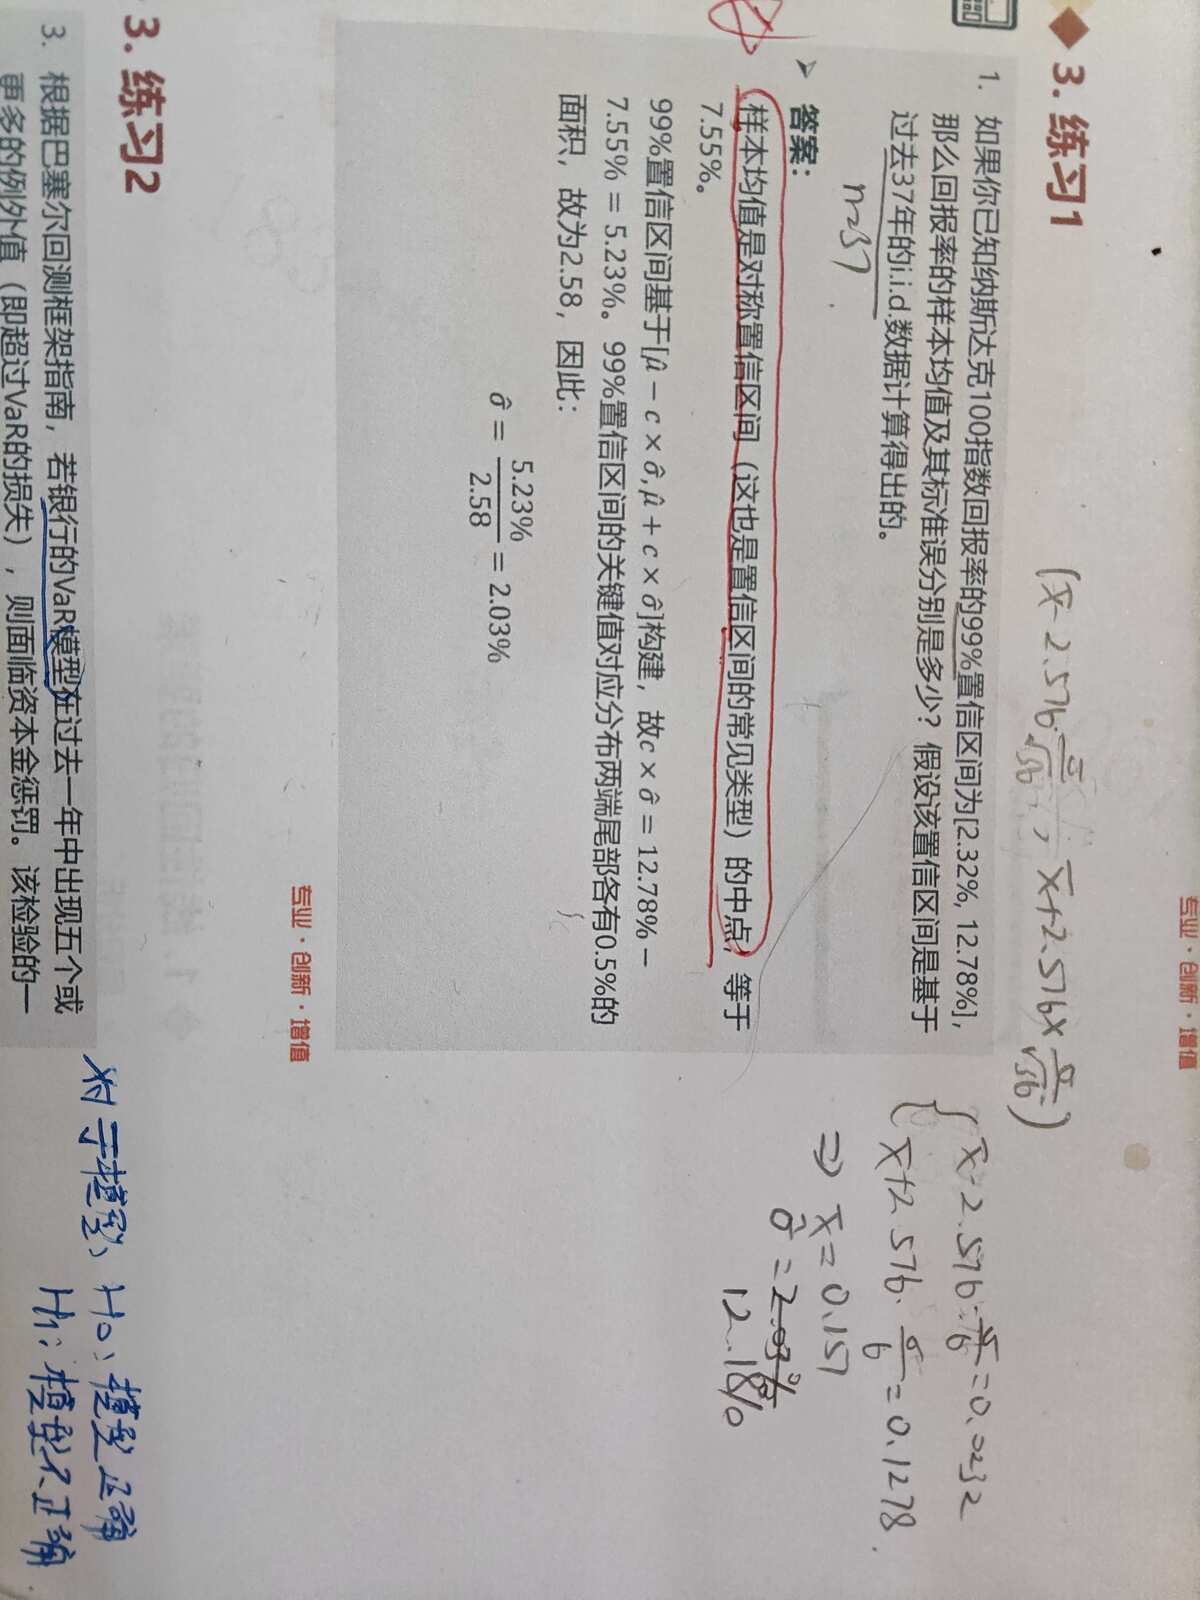 专业·创新·增值
3. 练习1
(x̄-2.576·σ/√36, x̄+2.576×σ/√36)
1. 如果你已知纳斯达克100指数回报率的99%置信区间为[2.32%, 12.78%],
那么回报率的样本均值及其标准误分别是多少？假设该置信区间是基于
过去37年的i.i.d.数据计算得出的。
n=37
{ x̄-2.576·σ/6=0.0232
x̄+2.576·σ/6=0.1278
⇒ x̄=0.151
σ̂=2.03%
12.18%
➢ 答案：
样本均值是对称置信区间（这也是置信区间的常见类型）的中点，等于
7.55%。
99%置信区间基于[μ̂ − c × σ̂, μ̂ + c × σ̂]构建，故c × σ̂ = 12.78% −
7.55% = 5.23%。99%置信区间的关键值对应分布两端尾部各有0.5%的
面积，故为2.58，因此：
σ̂ = 5.23%/2.58 = 2.03%
专业·创新·增值
3. 练习2
3. 根据巴塞尔回测框架指南，若银行的VaR模型在过去一年中出现五个或
更多的例外值（即超过VaR的损失），则面临资本金惩罚。该检验的一
对于模型、H₀：模型正确
H₁：模型不正确